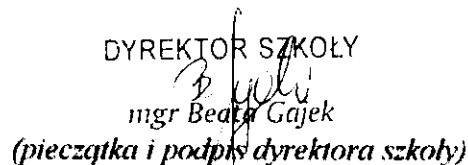 DYREKTOR SZKOŁY
mgr Beata Gajek
(pieczątka i podpis dyrektora szkoły)